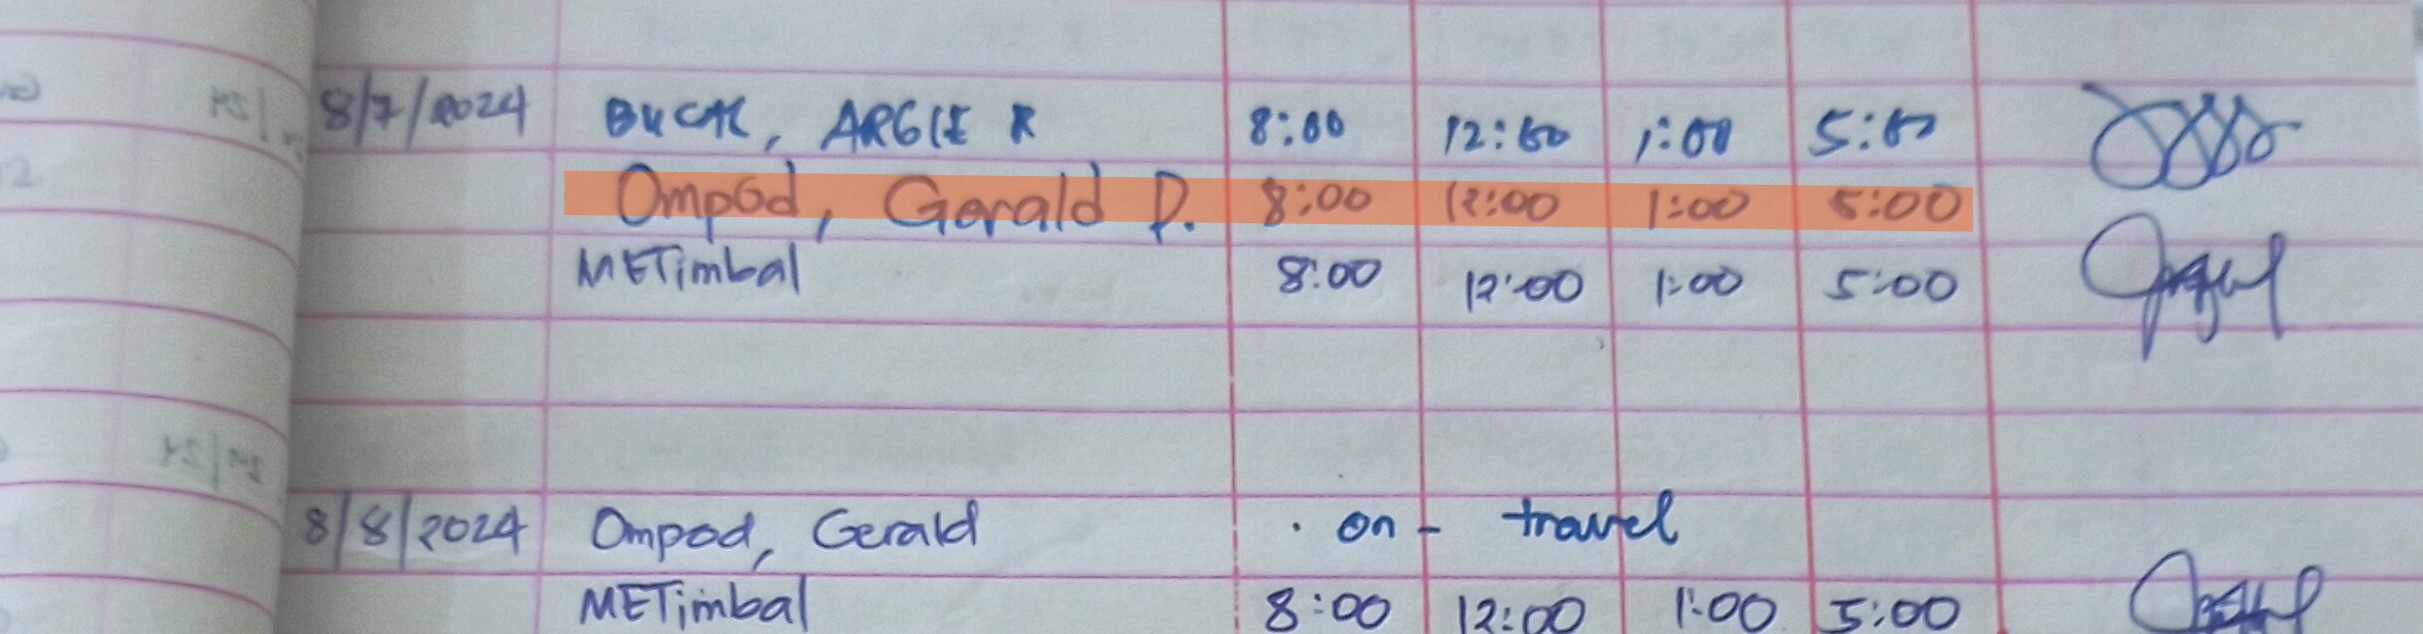 8/7/2024 BUCK, ARGIE R 8:00 12:00 1:00 5:00
Ompod, Gerald P. 8:00 12:00 1:00 5:00
METimbal 8:00 12:00 1:00 5:00
8/8/2024 Ompod, Gerald on - travel
METimbal 8:00 12:00 1:00 5:00